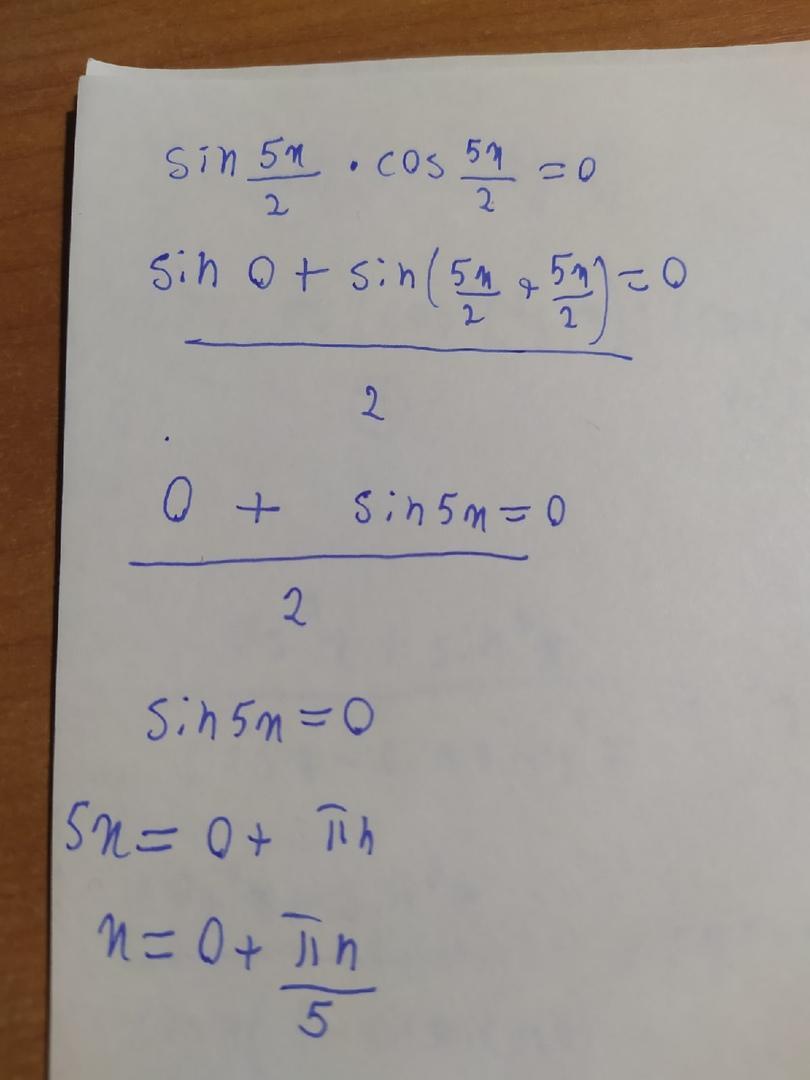 sin 5x/2 · cos 5x/2 = 0
sin 0 + sin(5x/2 + 5x/2) = 0
2
0 + sin5x = 0
2
sin5x = 0
5x = 0 + πn
x = 0 + πn/5